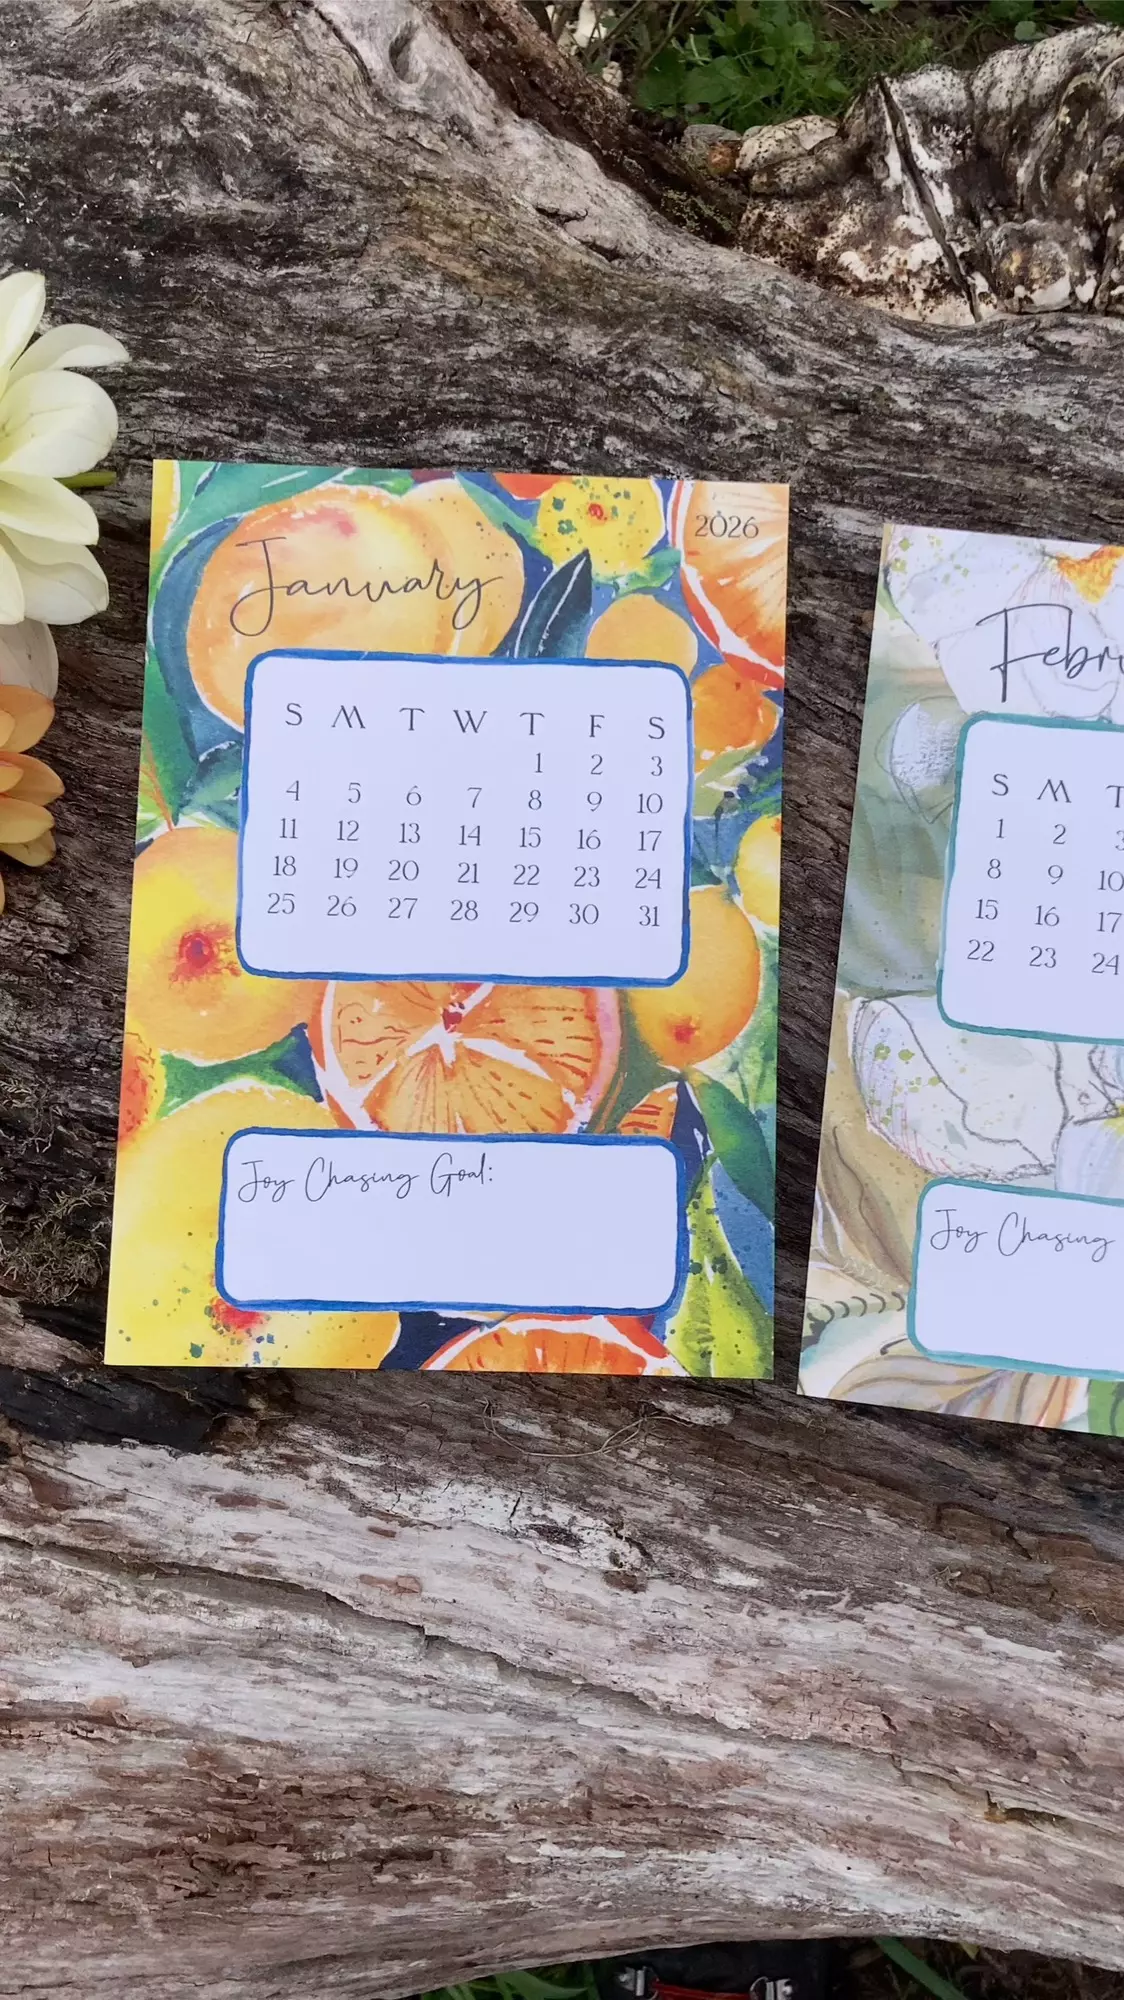 2026
January
S M T W T F S
1 2 3
4 5 6 7 8 9 10
11 12 13 14 15 16 17
18 19 20 21 22 23 24
25 26 27 28 29 30 31
Joy Chasing Goal:
Febru
S M T
1 2 3
8 9 10
15 16 17
22 23 24
Joy Chasing